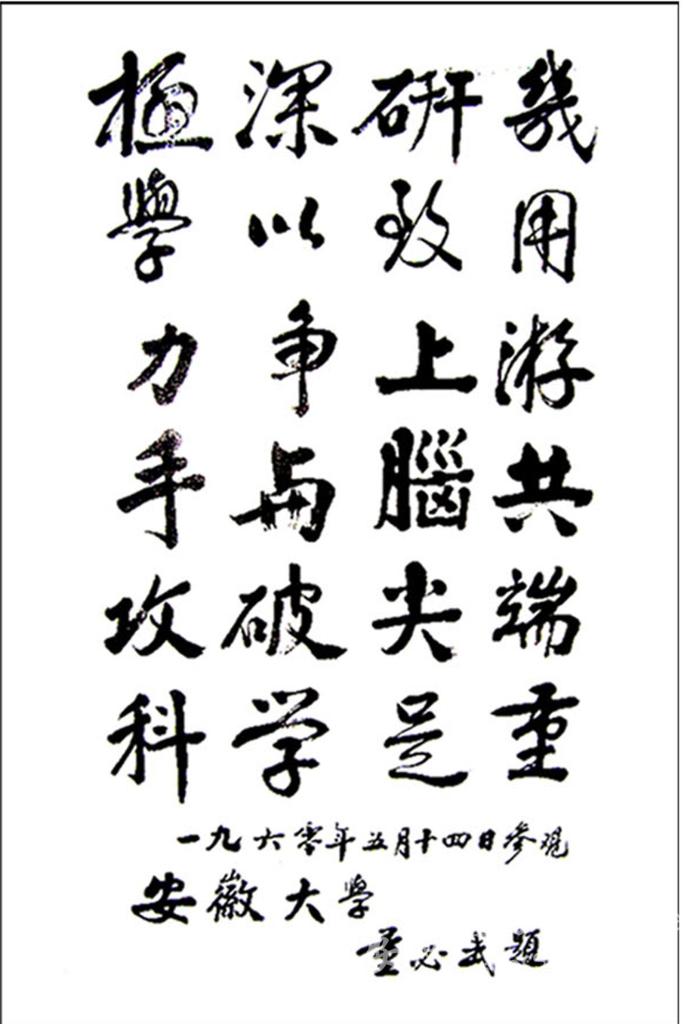 極深研幾
學以致用
力争上游
手与腦共
攻破尖端
科学是重
一九六零年五月十四日參观
安徽大學
董必武題